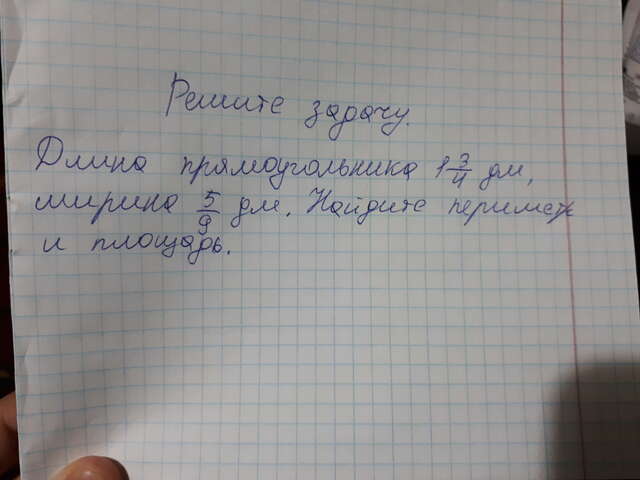 Решите задачу.
Длина прямоугольника 1 3/4 дм,
ширина 5/9 дм. Найдите периметр
и площадь.